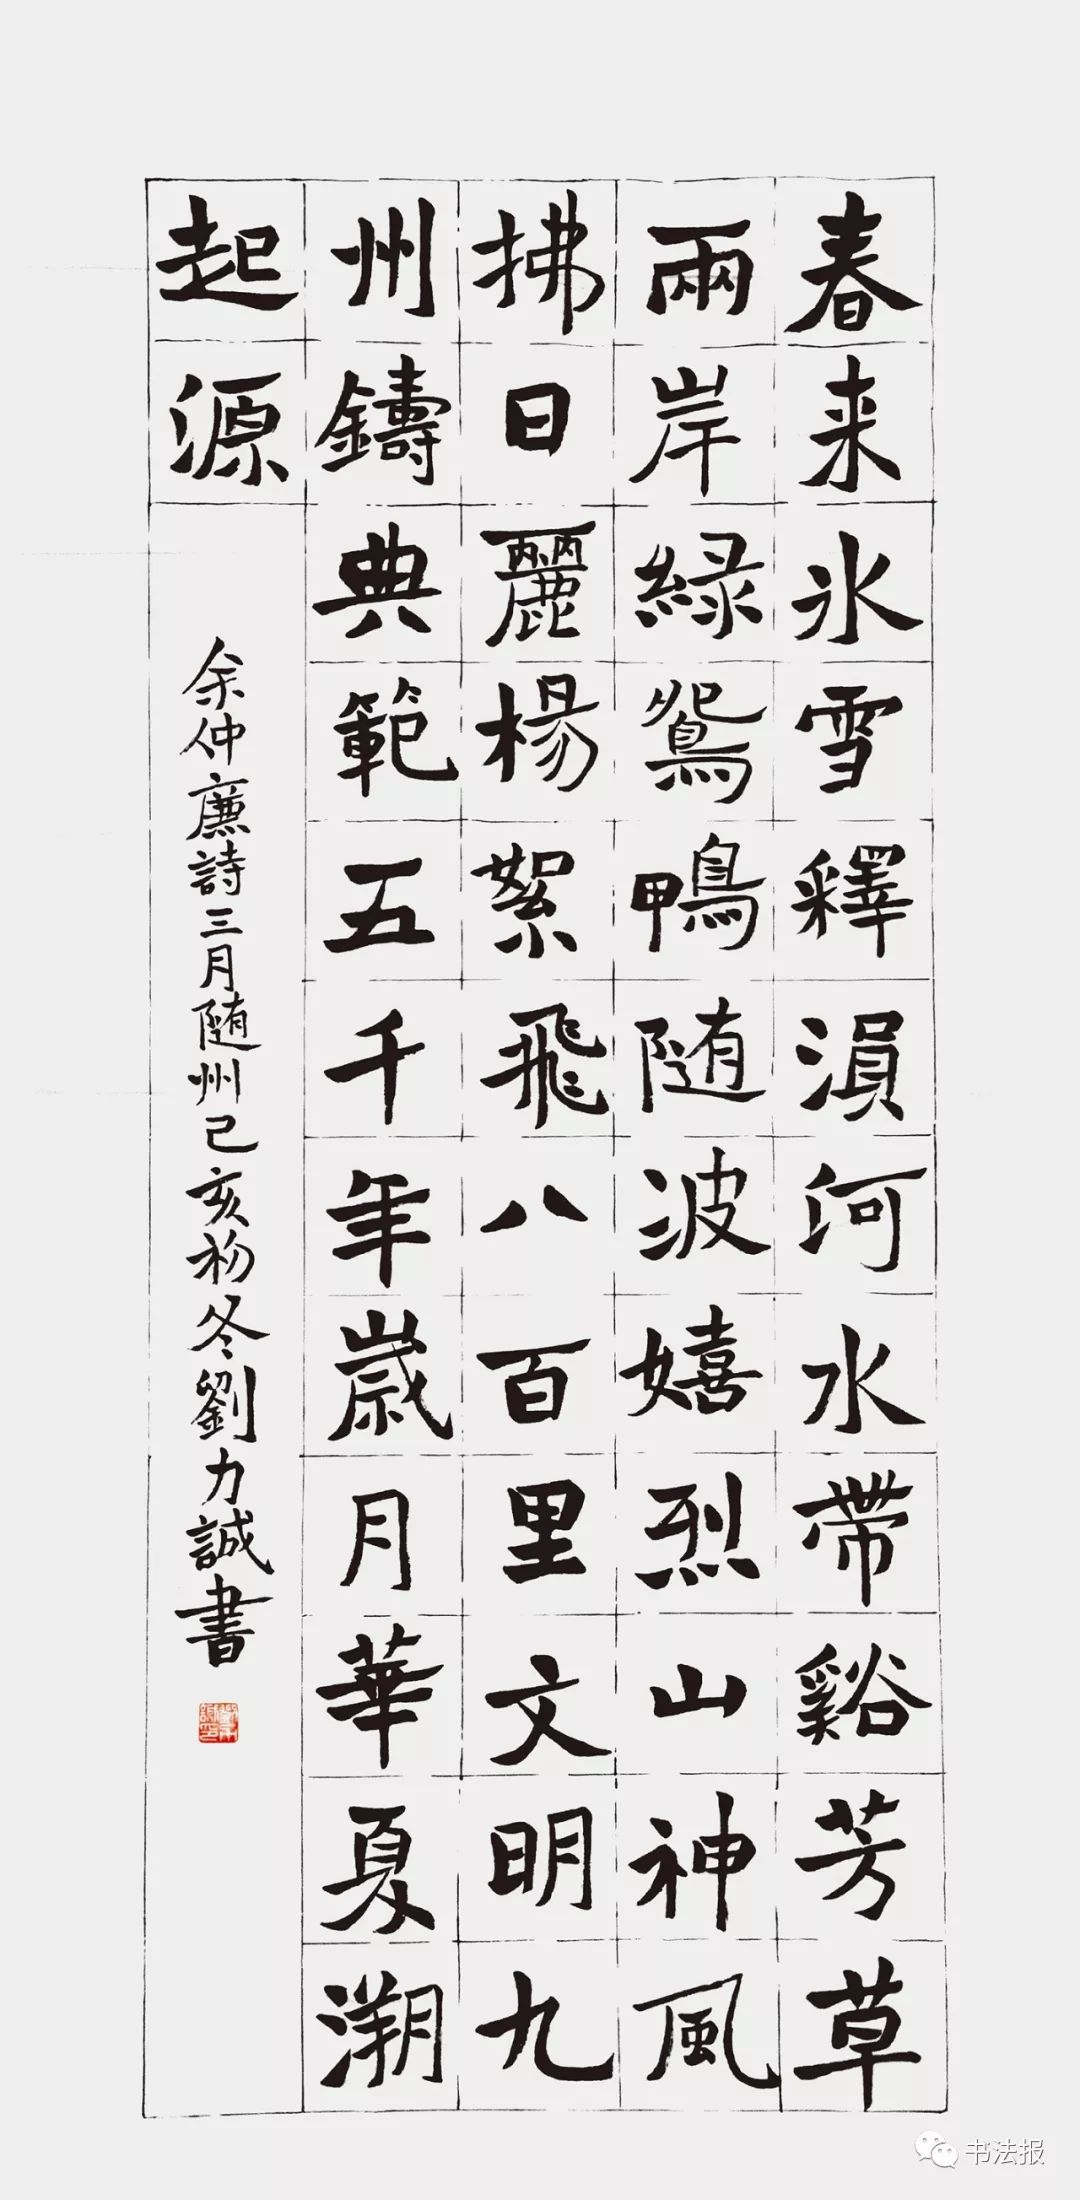 春来氷雪釋溳河水帶谿芳草
兩岸綠鴛鴨随波嬉烈山神風
拂日麗楊絮飛八百里文明九
州鑄典範五千年歲月華夏溯
起源
余仲廉詩三月随州己亥初冬劉力誠書
书法报